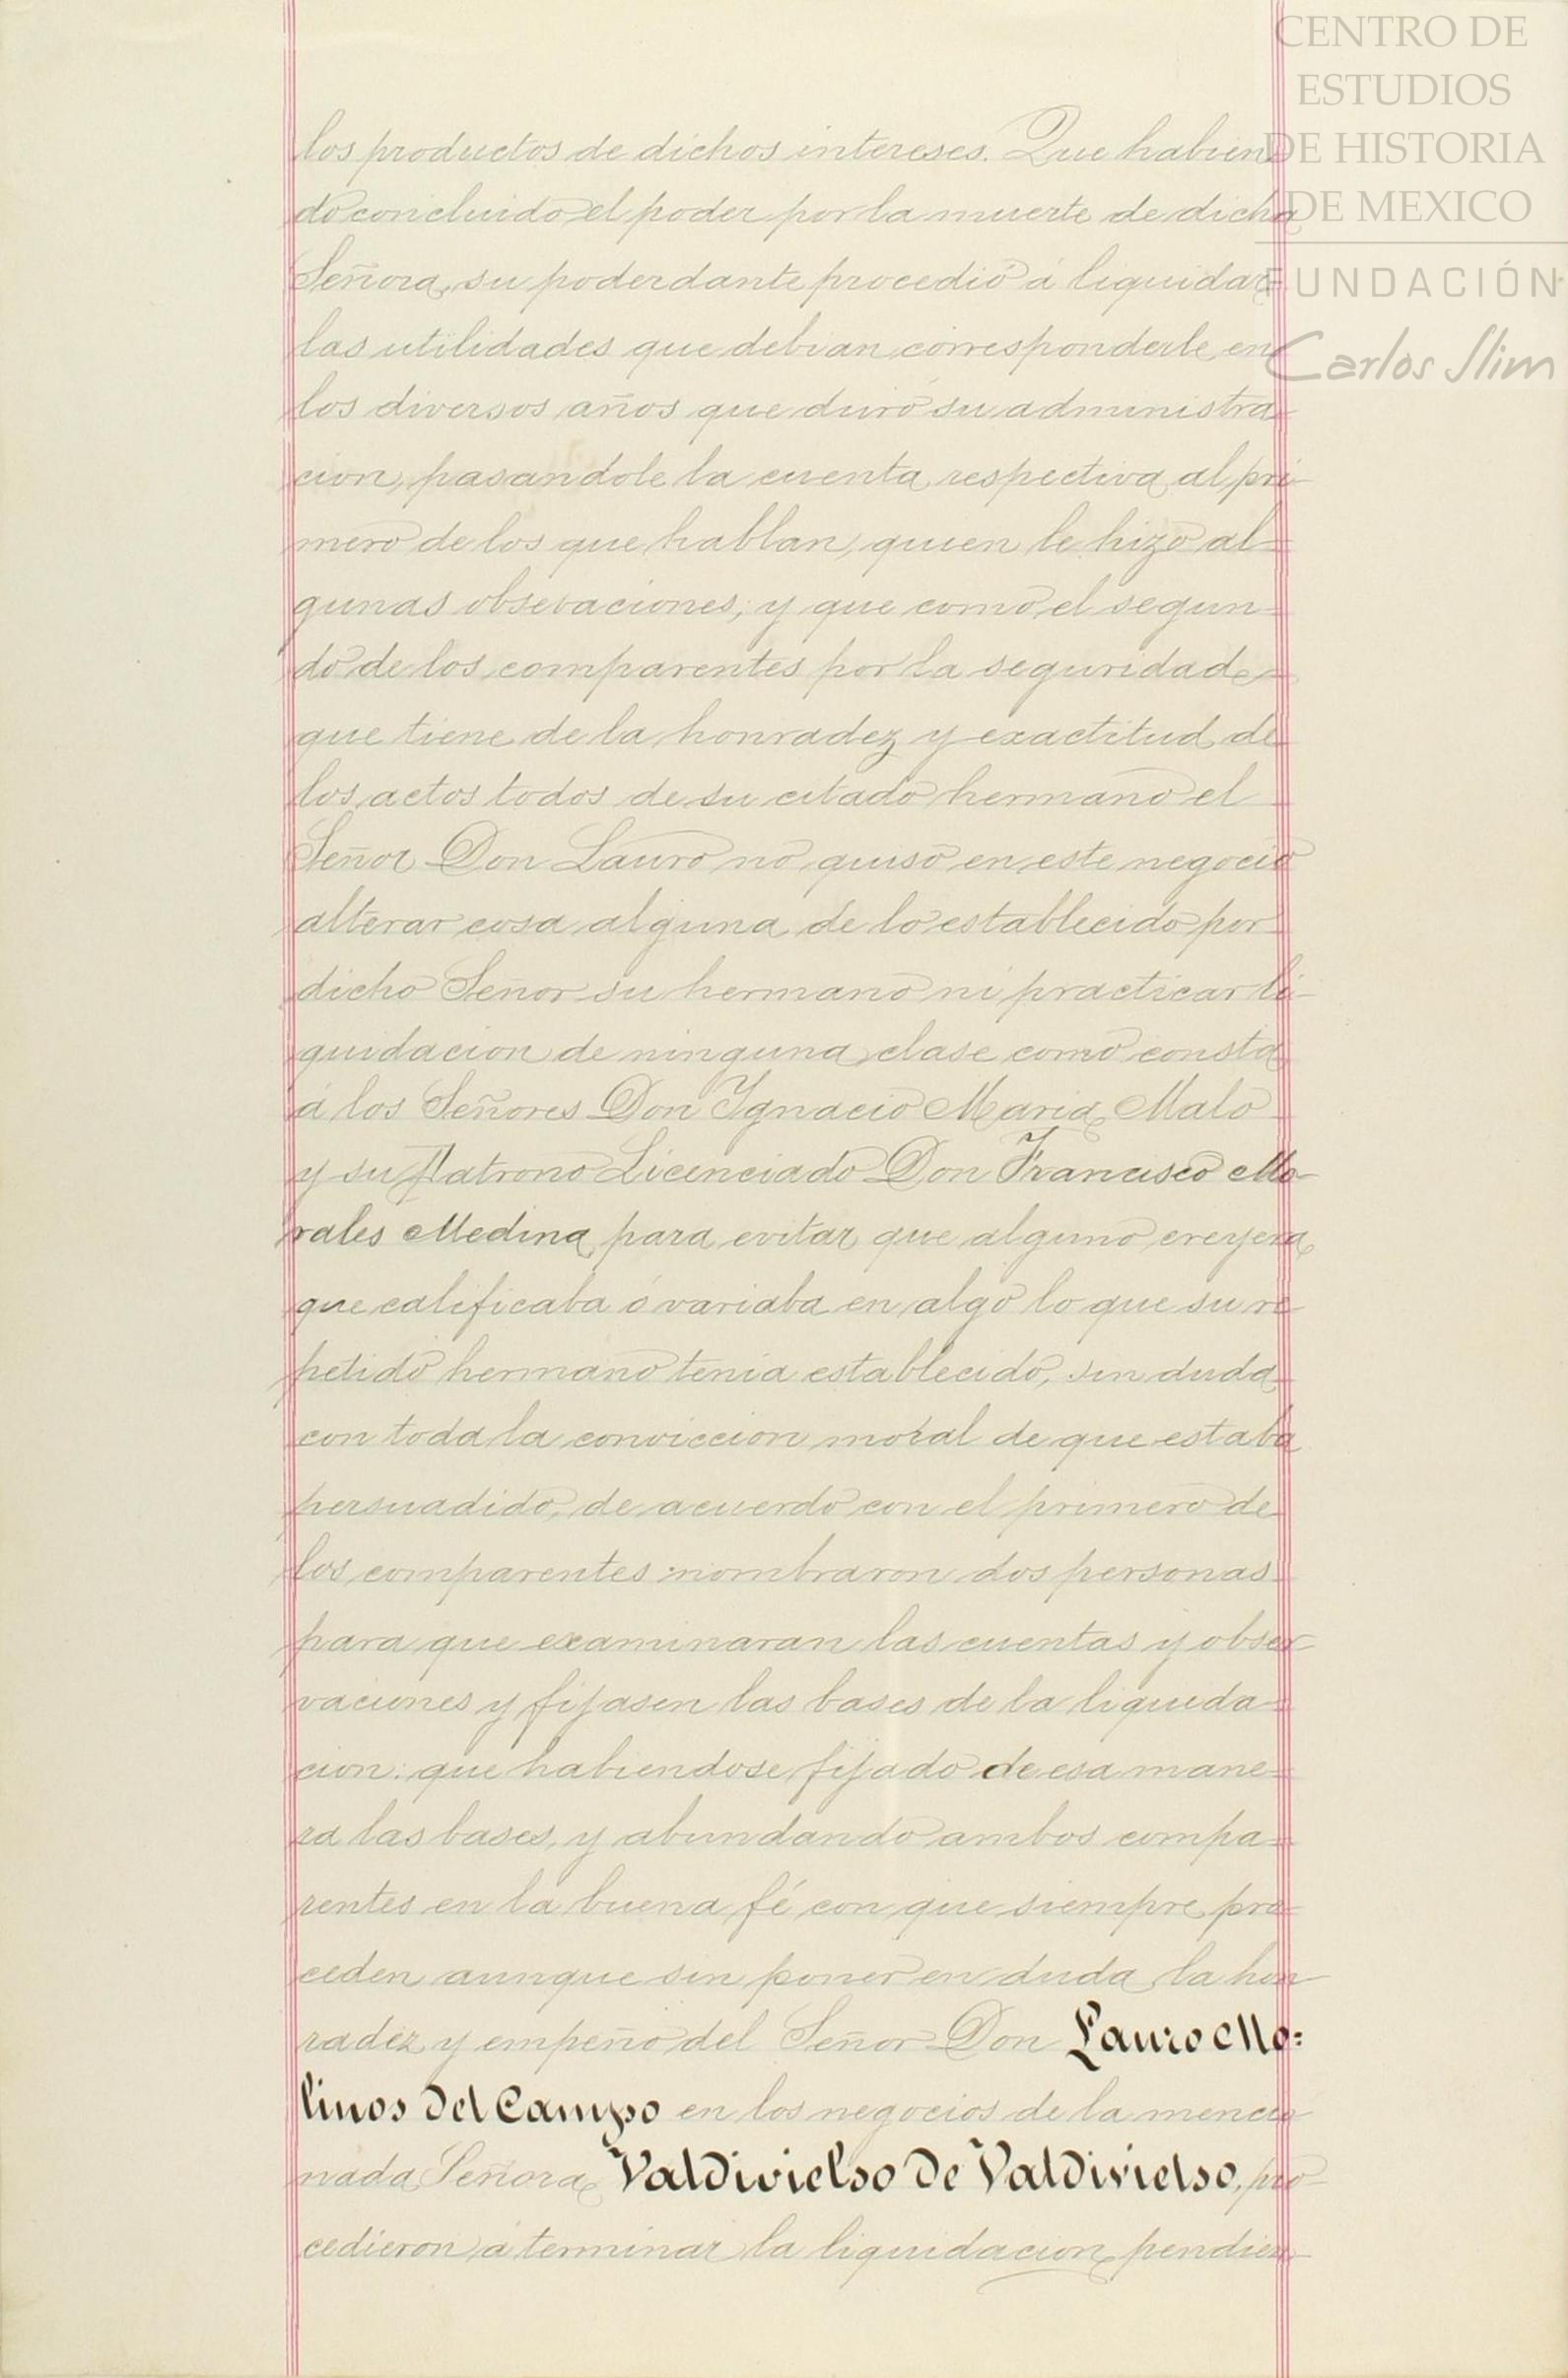 CENTRO DE
ESTUDIOS
DE HISTORIA
DE MEXICO
FUNDACIÓN
Carlos Slim
los productos de dichos intereses. Que habien
do concluido el poder por la muerte de dicha
Señora, su poderdante procedió á liquidar=
las utilidades que debian corresponderle en
los diversos años que duró su administra
cion, pasandole la cuenta respectiva al pri-
mero de los que hablan, quien le hizo al=
gunas obsevaciones; y que como el segun=
do de los comparentes por la seguridad
que tiene de la honradez y exactitud de
los actos todos de su citado hermano el
Señor Don Lauro no quiso en este negocio
alterar cosa alguna de lo establecido por
dicho Señor su hermano ni practicar li-
quidacion de ninguna clase como consta
á los Señores Don Ignacio Maria Malo
y su Patrono Licenciado Don Francisco Mo-
rales Medina para evitar que alguno creyera
que calificaba ó variaba en algo lo que su re
petido hermano tenia establecido, sin duda
con toda la conviccion moral de que estaba
persuadido, de acuerdo con el primero de
los comparentes nombraron dos personas
para que examinaran las cuentas y obser
vaciones y fijasen las bases de la liquida=
cion: que habiendose fijado de esa mane=
ra las bases, y abundando ambos compa=
rentes en la buena fé con que siempre pro
ceden aunque sin poner en duda la hon
radez y empeño del Señor Don Lauro Mo=
linos del Campo en los negocios de la mencio
nada Señora Valdivielso de Valdivielso, pro-
cedieron á terminar la liquidacion pendien